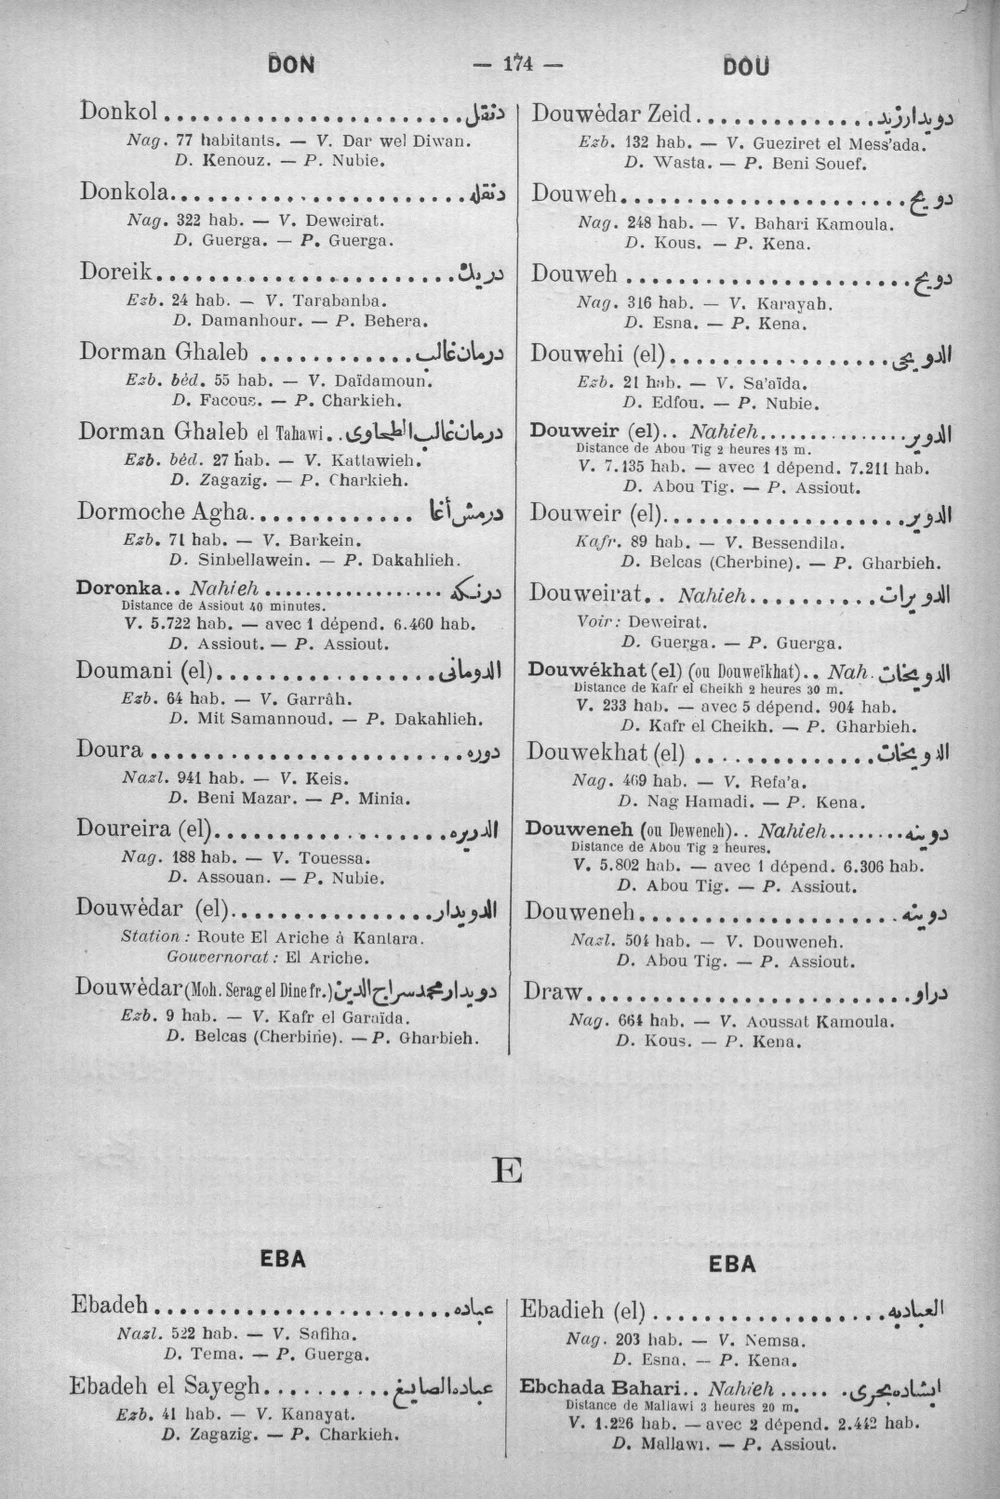 DON — 174 — DOU
Donkol ........................ دنقل
Nag. 77 habitants. — V. Dar wel Diwan.
D. Kenouz. — P. Nubie.
Donkola ........................ دنقله
Nag. 322 hab. — V. Deweirat.
D. Guerga. — P. Guerga.
Doreik ........................ دريك
Ezb. 24 hab. — V. Tarabanba.
D. Damanhour. — P. Behera.
Dorman Ghaleb ............ درمان غالب
Ezb. béd. 55 hab. — V. Daïdamoun.
D. Facous. — P. Charkieh.
Dorman Ghaleb el Tahawi .. درمان غالب الطحاوى
Ezb. béd. 27 hab. — V. Kattawieh.
D. Zagazig. — P. Charkieh.
Dormoche Agha ............ درمش أغا
Ezb. 71 hab. — V. Barkein.
D. Sinbellawein. — P. Dakahlieh.
Doronka .. Nahieh ................ درنكه
Distance de Assiout 40 minutes.
V. 5.722 hab. — avec 1 dépend. 6.460 hab.
D. Assiout. — P. Assiout.
Doumani (el) ................ الدومانى
Ezb. 64 hab. — V. Garrâh.
D. Mit Samannoud. — P. Dakahlieh.
Doura ........................ دوره
Nazl. 941 hab. — V. Keis.
D. Beni Mazar. — P. Minia.
Doureira (el) ................ الدريره
Nag. 188 hab. — V. Touessa.
D. Assouan. — P. Nubie.
Douwèdar (el) ................ الدويدار
Station : Route El Ariche à Kantara.
Gouvernorat : El Ariche.
Douwèdar (Moh. Serag el Dine fr.) دويدار محمد سراج الدين
Ezb. 9 hab. — V. Kafr el Garaïda.
D. Belcas (Cherbine). — P. Gharbieh.
Douwèdar Zeid ............ دويدار زيد
Ezb. 132 hab. — V. Gueziret el Mess'ada.
D. Wasta. — P. Beni Souef.
Douweh ........................ دويح
Nag. 248 hab. — V. Bahari Kamoula.
D. Kous. — P. Kena.
Douweh ........................ دويح
Nag. 316 hab. — V. Karayah.
D. Esna. — P. Kena.
Douwehi (el) ................ الدويحى
Ezb. 21 hab. — V. Sa'aïda.
D. Edfou. — P. Nubie.
Douweir (el) .. Nahieh ................ الدوير
Distance de Abou Tig 2 heures 15 m.
V. 7.135 hab. — avec 1 dépend. 7.211 hab.
D. Abou Tig. — P. Assiout.
Douweir (el) ................ الدوير
Kafr. 89 hab. — V. Bessendila.
D. Belcas (Cherbine). — P. Gharbieh.
Douweirat .. Nahieh .......... الدويرات
Voir : Deweirat.
D. Guerga. — P. Guerga.
Douwékhat (el) (ou Douweïkhat) .. Nah. الدويخات
Distance de Kafr el Cheikh 2 heures 30 m.
V. 233 hab. — avec 5 dépend. 904 hab.
D. Kafr el Cheikh. — P. Gharbieh.
Douwekhat (el) ............ الدويخات
Nag. 469 hab. — V. Refa'a.
D. Nag Hamadi. — P. Kena.
Douweneh (ou Deweneh) .. Nahieh ........ دوينه
Distance de Abou Tig 2 heures.
V. 5.802 hab. — avec 1 dépend. 6.306 hab.
D. Abou Tig. — P. Assiout.
Douweneh ................ دوينه
Nazl. 504 hab. — V. Douweneh.
D. Abou Tig. — P. Assiout.
Draw ........................ دراو
Nag. 664 hab. — V. Aoussat Kamoula.
D. Kous. — P. Kena.
E
EBA
Ebadeh ........................ عباده
Nazl. 522 hab. — V. Safiha.
D. Tema. — P. Guerga.
Ebadeh el Sayegh .......... عباده الصايغ
Ezb. 41 hab. — V. Kanayat.
D. Zagazig. — P. Charkieh.
EBA
Ebadieh (el) ................ العباديه
Nag. 203 hab. — V. Nemsa.
D. Esna. — P. Kena.
Ebchada Bahari .. Nahieh ...... ابشاده بحرى
Distance de Mallawi 3 heures 20 m.
V. 1.226 hab. — avec 2 dépend. 2.442 hab.
D. Mallawi. — P. Assiout.